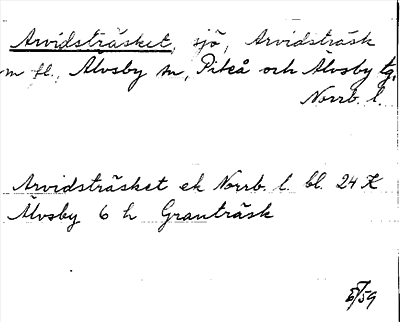 Arvidsträsket, sjö, Arvidsträsk
m fl., Älvsby sn, Piteå och Älvsby tg,
Norrb. l.
Arvidsträsket ek Norrb. l. bl. 24 K
Älvsby 6 h Granträsk
/59